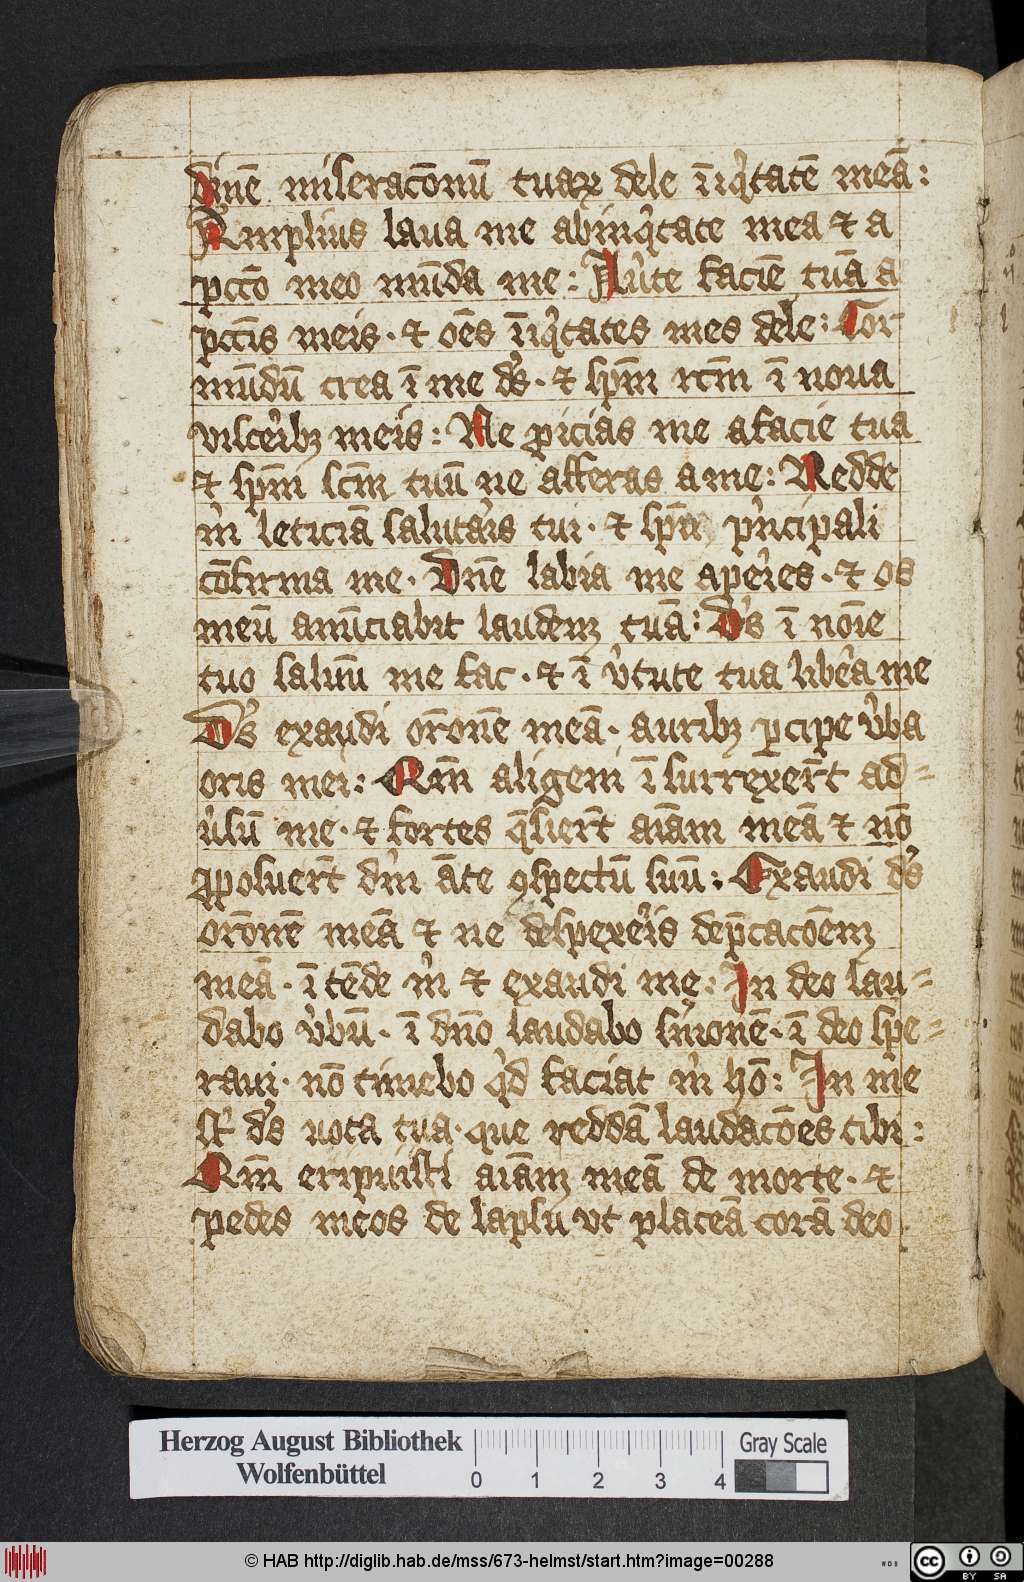 dinē miseracōnū tuaꝝ dele īiqͥtatē meā:
Amplius laua me abiniqͥtate mea ⁊ a
pctō meo mūda me: Aũte faciē tuā a
pctīs meis · ⁊ oēs īiqͥtates mes dele: Cor
mūdū crea ī me dꝰs · ⁊ spm̄ rctm̄ ī noua
viscerībꝫ meis: Ne ꝓicias me afacie tua
⁊ spm̄ scm̄ tuū ne afferas a me: Redde
m̄ leticiā salutaīs tui · ⁊ spū pͥncipali
cōfirma me · Dnē labia me aperies · ⁊ os
meū anūciabit laudem tuā: Dꝰs ī noīe
tuo saluū me fac · ⁊ ī v̓tute tua libeͣ me
Dꝰs exaudi orōnē meā · auribꝫ ꝑcipe v̓ba
oris mei: Qm̄ aligeni īsurrexer̄t ad=
ũsū me · ⁊ fortes q̄sier̄t aīam meā ⁊ nō
ꝓposuer̄t dm̄ āte ꝯspectū suū: Exaudi dꝰs
orōnē meā ⁊ ne despexeris dep̄cacōem
meā · ītēde m̄ ⁊ exaudi me: In deo lau=
dabo v̓bū · ī dnō laudabo sm̄onē · ī deo spe=
raui · nō timebo qͥd faciat m̄ hō: In me
st̄ dꝰs uota tua · que reddā laudacōes tibi:
Qm̄ eripuisti aīam meā de morte · ⁊
pedes meos de lapsu vt placeā corā deo
Herzog August Bibliothek
Wolfenbüttel
0 1 2 3 4
Gray Scale
© HAB http://diglib.hab.de/mss/673-helmst/start.htm?image=00288
cc BY SA